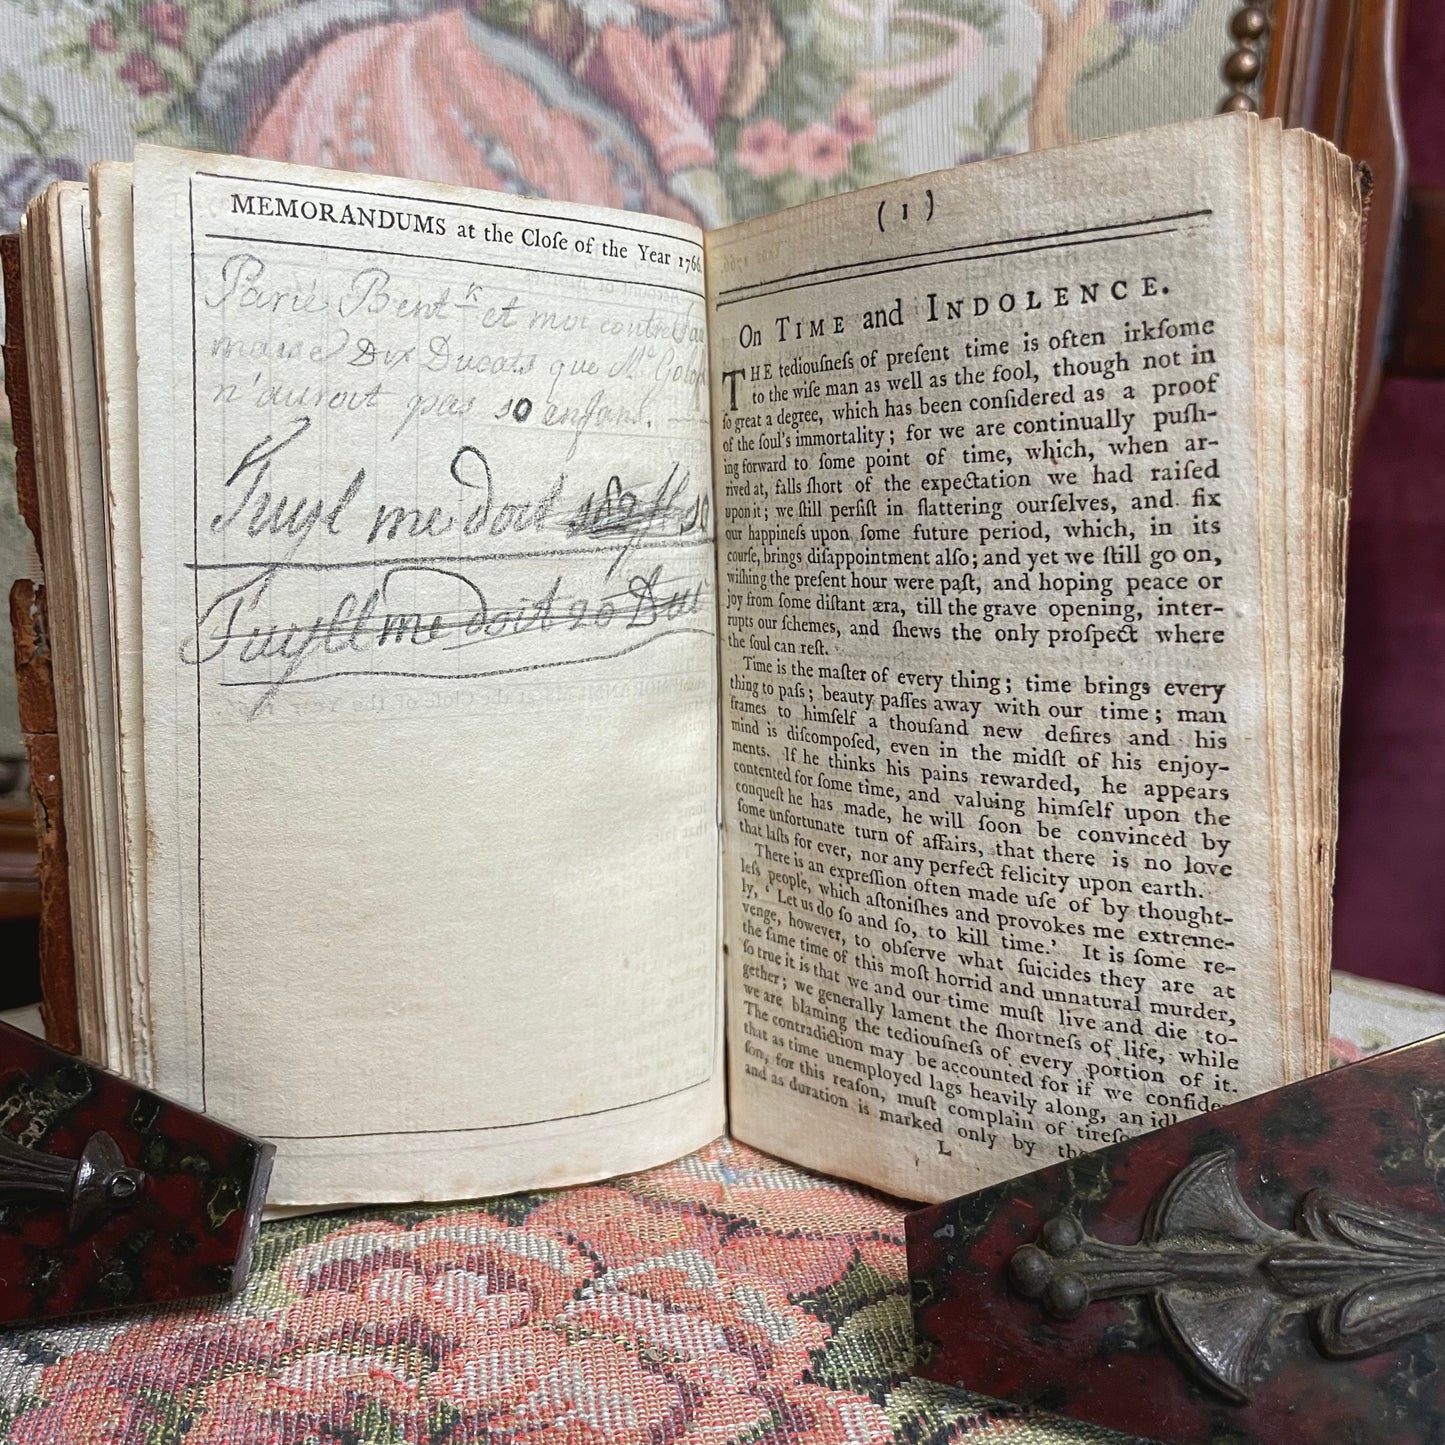 MEMORANDUMS at the Cloſe of the Year 1766.
Parié Bent^k et moi contre
Dix Ducats que M^r
n'auroit pas 10 enfans.
Tuyl me doit
Tuyll me doit 20 Duc
( 1 )
On TIME and INDOLENCE.
THE tediouſneſs of preſent time is often irkſome
to the wiſe man as well as the fool, though not in
ſo great a degree, which has been conſidered as a proof
of the ſoul's immortality; for we are continually puſh-
ing forward to ſome point of time, which, when ar-
rived at, falls ſhort of the expectation we had raiſed
upon it; we ſtill perſiſt in flattering ourſelves, and fix
our happineſs upon ſome future period, which, in its
courſe, brings diſappointment alſo; and yet we ſtill go on,
wiſhing the preſent hour were paſt, and hoping peace or
joy from ſome diſtant æra, till the grave opening, inter-
rupts our ſchemes, and ſhews the only proſpect where
the ſoul can reſt.
Time is the maſter of every thing; time brings every
thing to paſs; beauty paſſes away with our time; man
frames to himſelf a thouſand new deſires and his
mind is diſcompoſed, even in the midſt of his enjoy-
ments. If he thinks his pains rewarded, he appears
contented for ſome time, and valuing himſelf upon the
conqueſt he has made, he will ſoon be convinced by
ſome unfortunate turn of affairs, that there is no love
that laſts for ever, nor any perfect felicity upon earth.
There is an expreſſion often made uſe of by thought-
leſs people, which aſtoniſhes and provokes me extreme-
ly, ‘Let us do ſo and ſo, to kill time.’ It is ſome re-
venge, however, to obſerve what ſuicides they are at
the ſame time of this moſt horrid and unnatural murder,
ſo true it is that we and our time muſt live and die to-
gether; we generally lament the ſhortneſs of life, while
we are blaming the tediouſneſs of every portion of it.
The contradiction may be accounted for if we conſider
that as time unemployed lags heavily along, an idl
ſon, for this reaſon, muſt complain of tireſo
and as duration is marked only by the
L